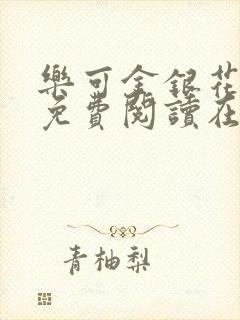 樂可金銀花
免費閱讀在
青柚梨